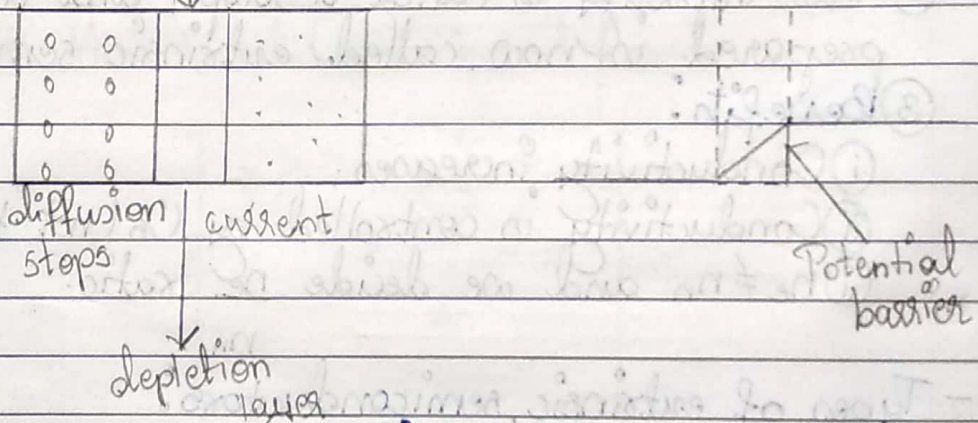 diffusion current
stops
Potential
barrier
depletion
layer